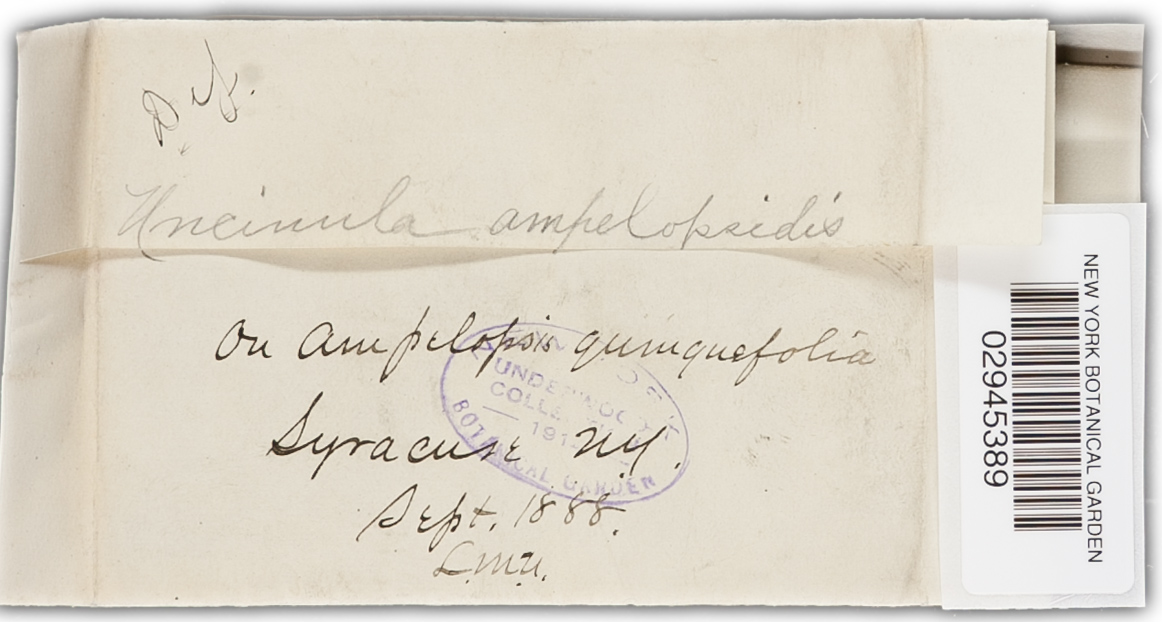 Uncinula ampelopsidis
On Ampelopsis quinquefolia
Syracuse NY.
Sept. 1888.
L.M.U.
UNDERWOOD
COLLECTION
191
BOTANICAL GARDEN
NEW YORK BOTANICAL GARDEN
02945389